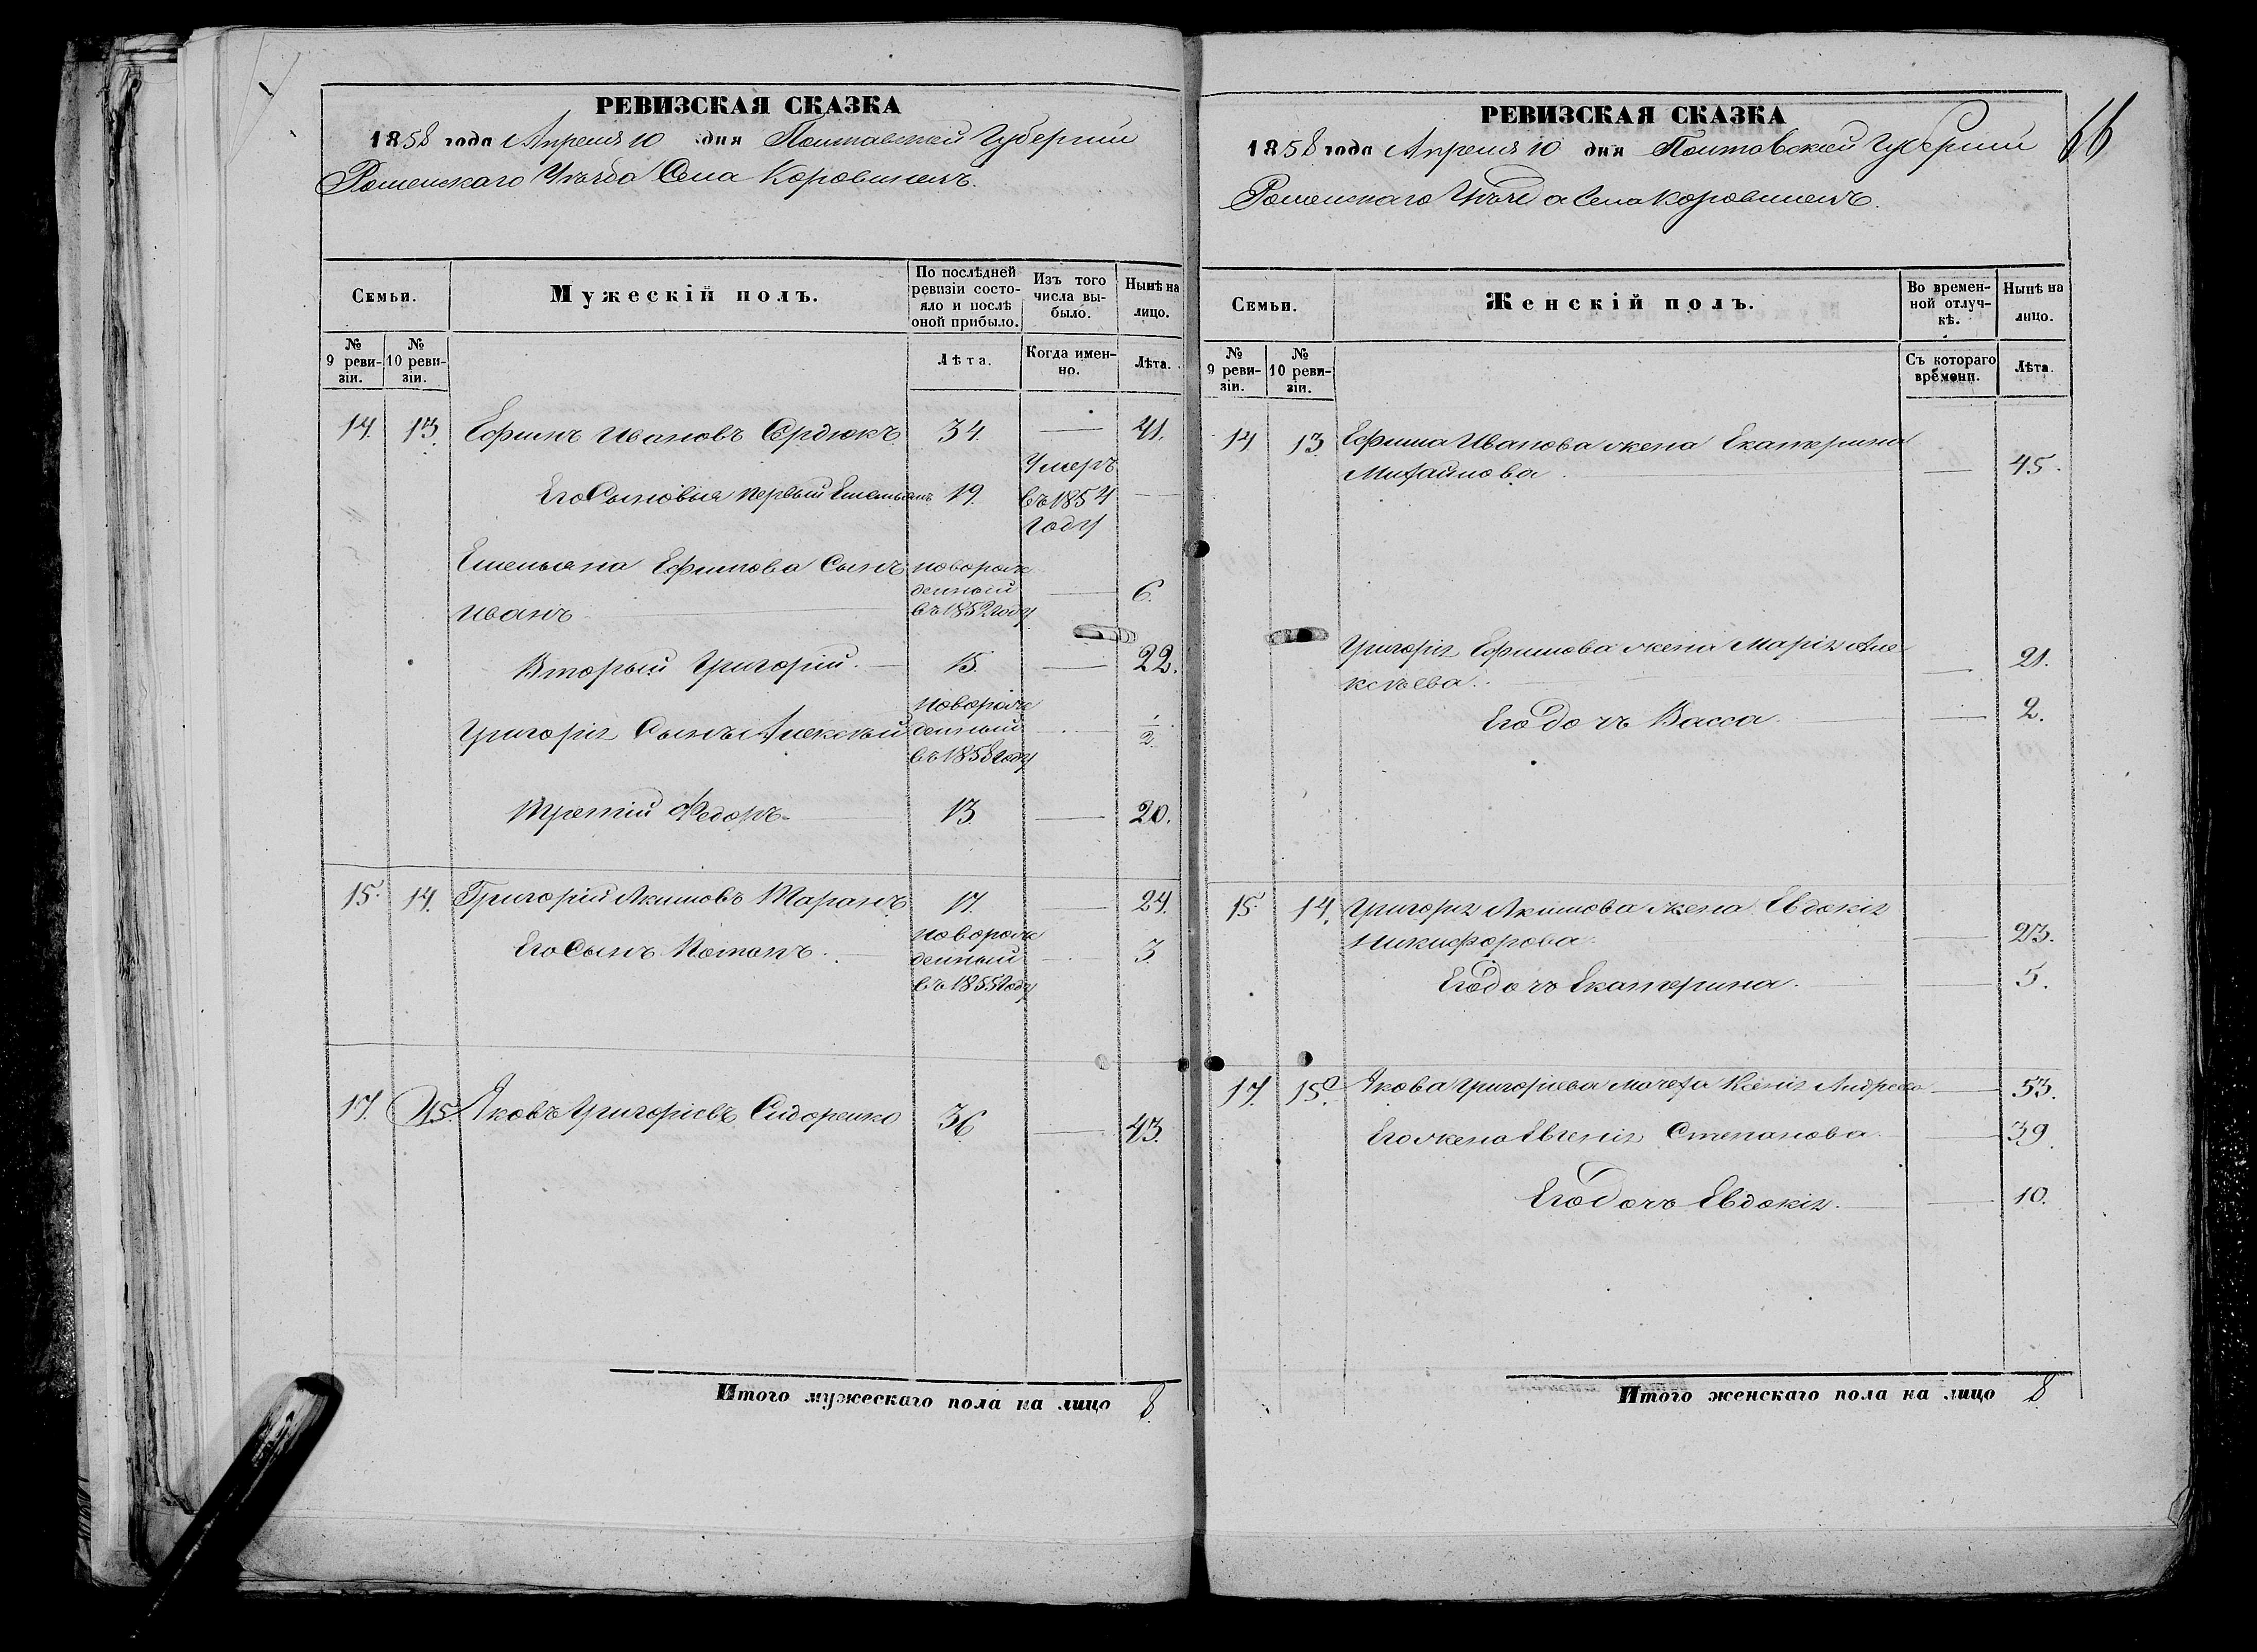 РЕВИЗСКАЯ СКАЗКА
1858 года Апреля 10 дня Полтавской Губернии
Роменскаго Уѣзда Села Коровинецъ.
Семьи.
Мужескій полъ.
По послѣдней ревизіи состояло и послѣ оной прибыло.
Изъ того числа выбыло.
Нынѣ на лицо.
№ 9 ревизіи.
№ 10 ревизіи.
Лѣта.
Когда именно.
Лѣта.
14. 13. Ефимъ Ивановъ Сердюкъ 34. — 41.
Его Сыновья первый Емельянъ 19. Умеръ въ 1854 году —
Емельяна Ефимова Сынъ новорожденный
Иванъ въ 1852 году — 6.
Вторый Григорий. 15. — 22.
Григорія Сынъ Алексѣй новорожденный въ 1858 году — 1/2.
Третій Федоръ 13. — 20.
15. 14. Григорій Акимовъ Таранъ 17. — 24.
Его Сынъ Потапъ. новорожденный въ 1855 году — 3.
17. 15. Яковъ Григоріевъ Сидоренко 36. — 43.
Итого мужескаго пола на лицо 8.
66
РЕВИЗСКАЯ СКАЗКА
1858 года Апреля 10 дня Полтавской Губерний
Роменскаго Уѣзда Села Коровинецъ.
Семьи.
Женскій полъ.
Во временной отлучкѣ.
Нынѣ на лицо.
№ 9 ревизіи.
№ 10 ревизіи.
Съ котораго времени.
Лѣта.
14. 13. Ефима Иванова жена Екатерина
Михайлова — 45.
Григорія Ефимова жена Марія Але-
ксѣева. — 21.
Его дочь Васса. — 2.
15. 14. Григорія Акимова жена Евдокія
Никифорова. — 23.
Его дочь Екатерина. — 5.
17. 15. Якова Григорьева мачеха Ксенія Андреева — 53.
Его жена Евгенія Степанова. — 39.
Его дочь Евдокія. — 10.
Итого женскаго пола на лицо 8.